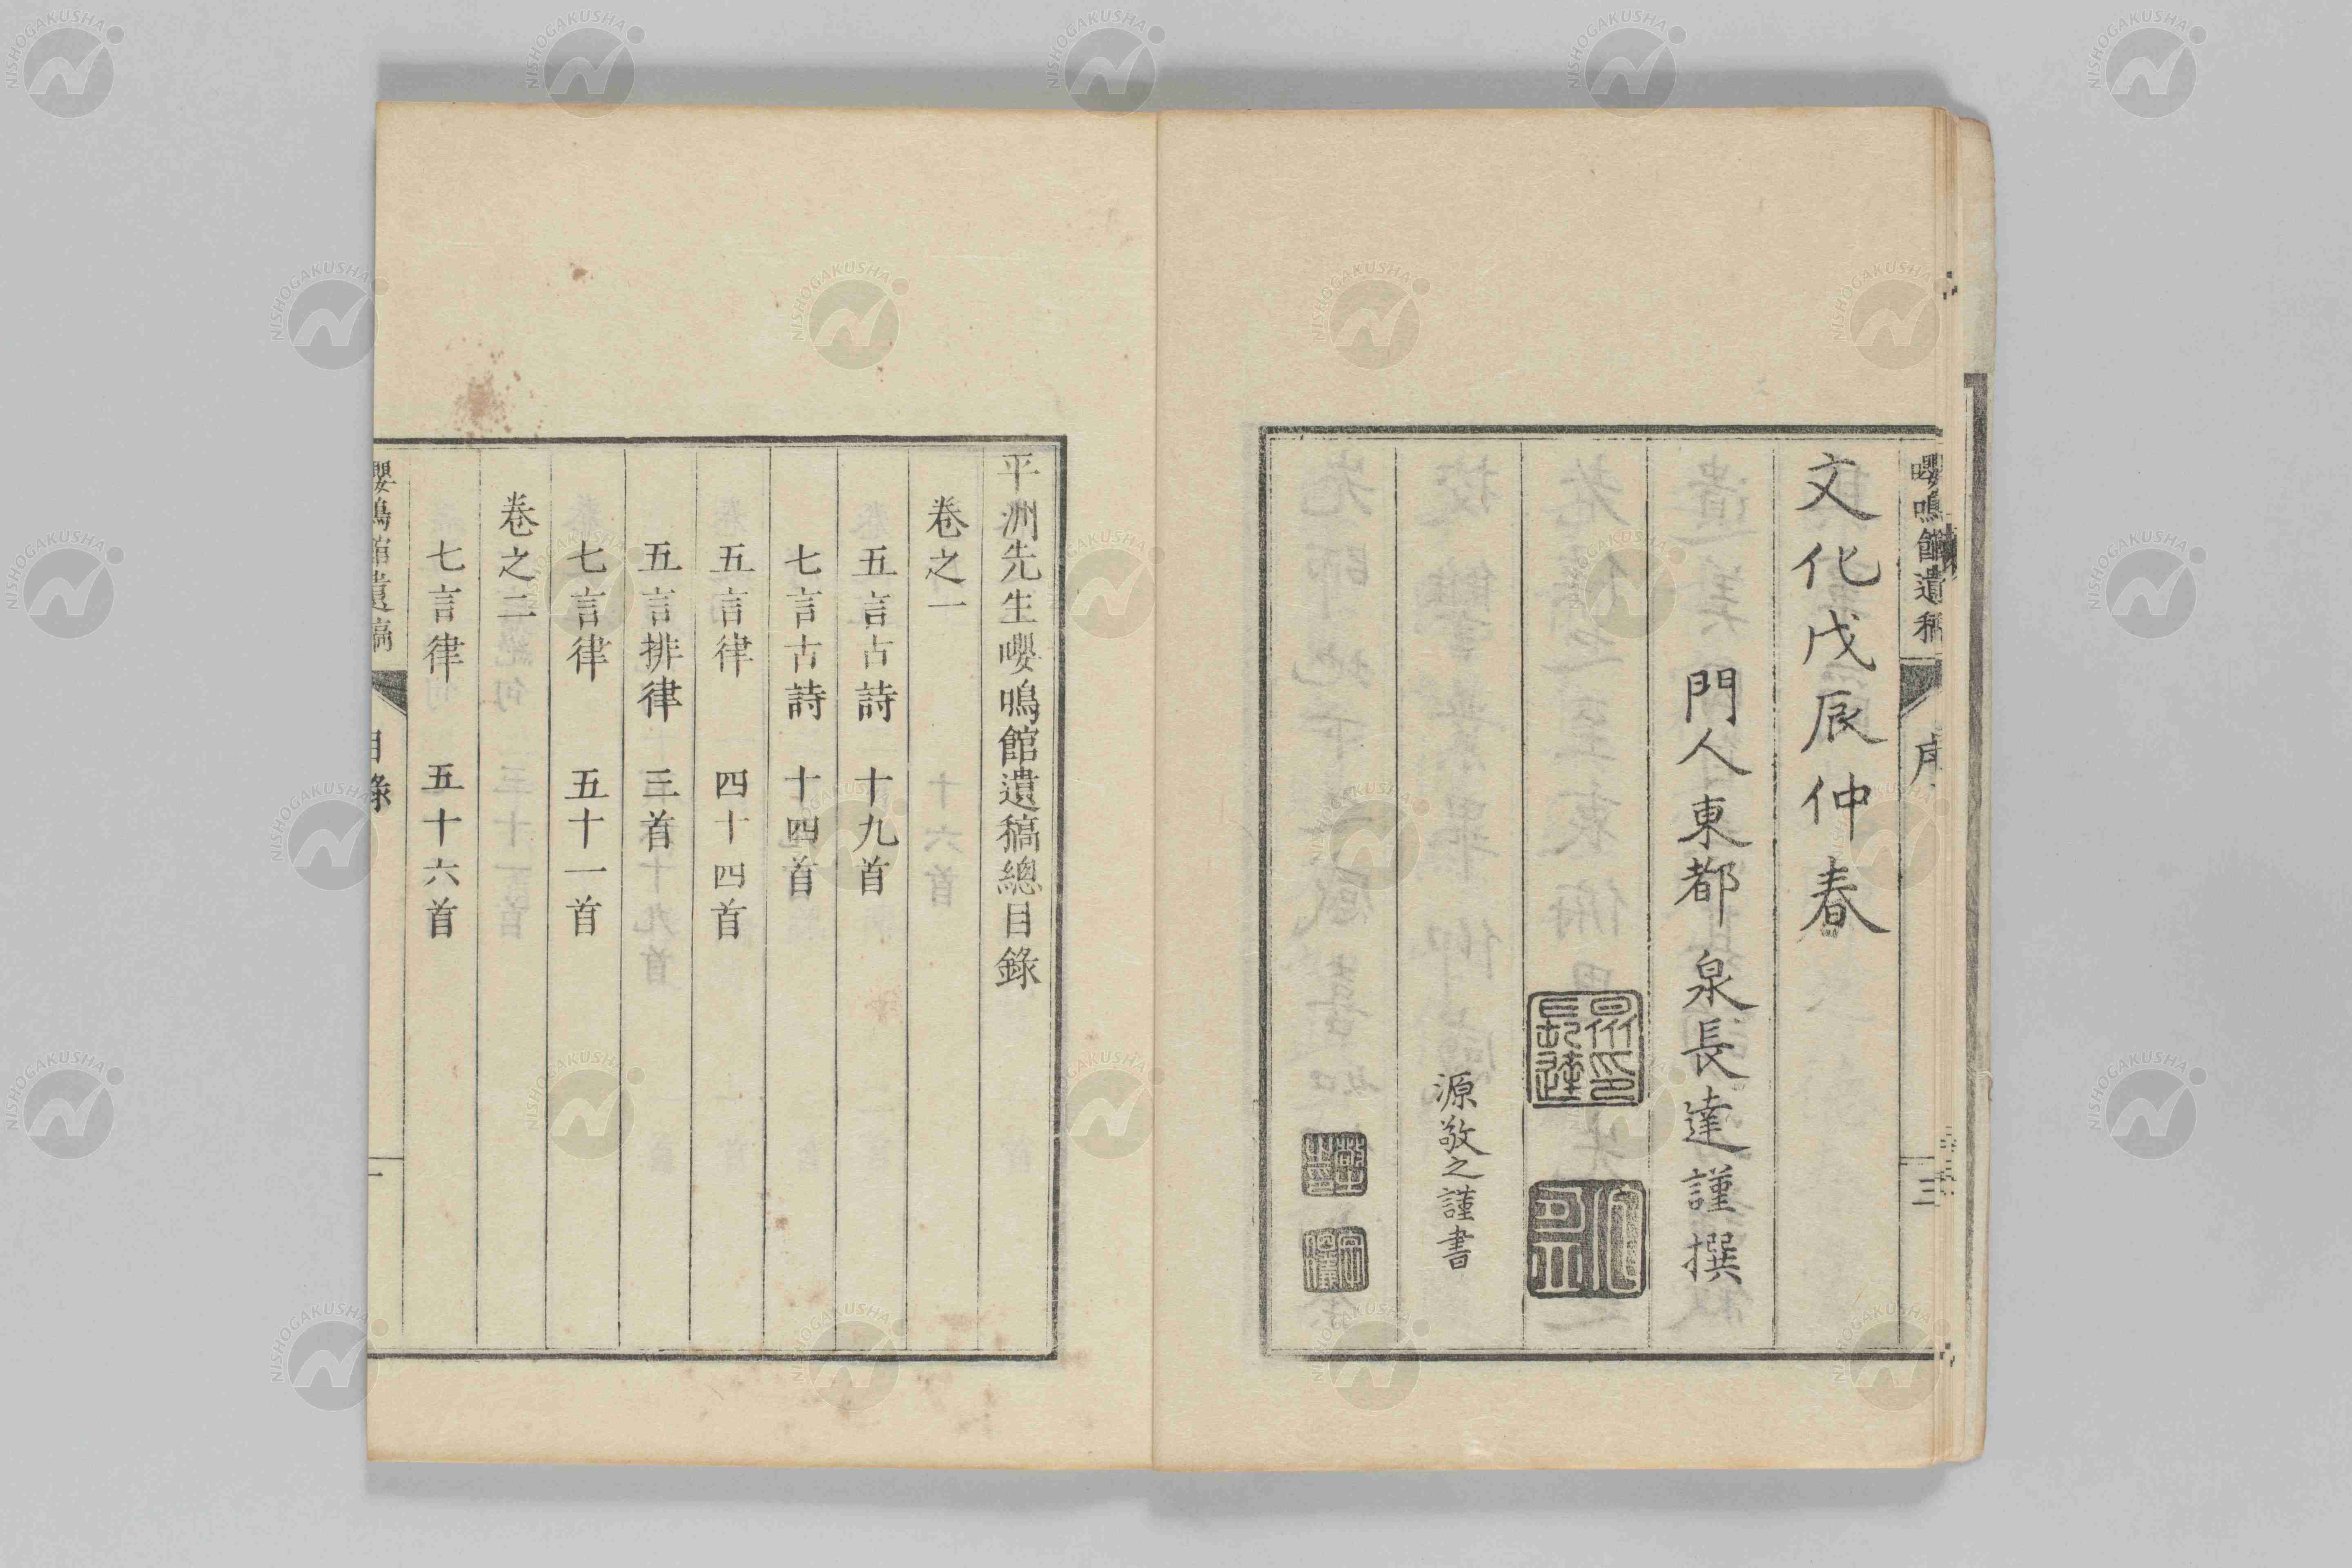 嚶鳴館遺稿
序
三
文化戊辰仲春
門人東都 泉長達謹撰
泉印長達
源敬之謹書
平洲先生嚶鳴館遺稿總目錄
卷之一
五言古詩 十九首
七言古詩 十四首
五言律 四十四首
五言排律 三首
七言律 五十一首
卷之二
七言律 五十六首
嚶鳴館遺稿
目錄
一
NISHOGAKUSHA